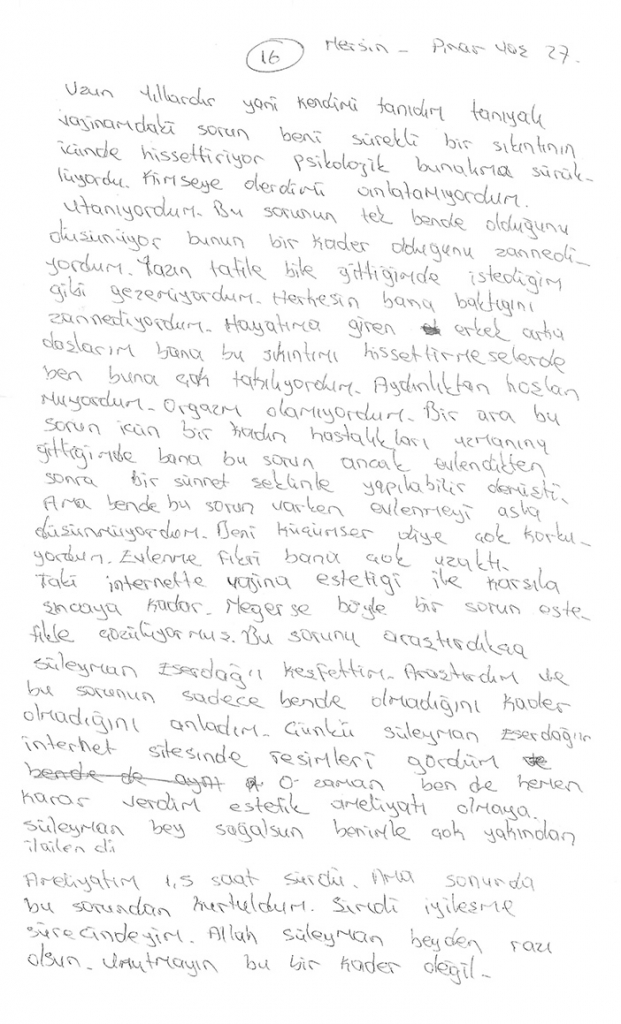 16 Mersin - Pınar yaş 27.
Uzun yıllardır yani kendimi tanıdım tanıyalı
vajinamdaki sorun beni sürekli bir sıkıntının
içinde hissettiriyor psikolojik bunalıma sürük-
lüyordu. Kimseye derdimi anlatamıyordum.
Utanıyordum. Bu sorunun tek bende olduğunu
düşünüyor bunun bir kader olduğunu zannedi-
yordum. Yazın tatile bile gittiğimde istediğim
gibi gezemiyordum. Herkesin bana baktığını
zannediyordum. Hayatıma giren erkek arka
daşlarım bana bu sıkıntımı hissettirmeselerde
ben buna çok takılıyordum. Aydınlıktan hoşlan
mıyordum. Orgazm olamıyordum. Bir ara bu
sorun için bir kadın hastalıkları uzmanına
gittiğimde bana bu sorun ancak evlendikten
sonra bir sünnet şeklinle yapılabilir demişti.
Ama bende bu sorun varken evlenmeyi asla
düşünmüyordum. Beni küçümser diye çok korku-
yordum. Evlenme fikri bana çok uzaktı.
Taki internette vajina estetiği ile karşıla
şıncaya kadar. Meğerse böyle bir sorun este-
tikle çözülüyormuş. Bu sorunu araştırdıkça
Süleyman Eserdağ'ı keşfettim. Araştırdım ve
bu sorunun sadece bende olmadığını kader
olmadığını anladım. Çünkü Süleyman Eserdağın
internet sitesinde resimleri gördüm ve
bende de aynı O zaman ben de hemen
karar verdim estetik ameliyatı olmaya.
Süleyman bey sağolsun benimle çok yakından
ilgilendi
Ameliyatım 1,5 saat sürdü. Ama sonunda
bu sorundan kurtuldum. Şimdi iyileşme
sürecindeyim. Allah Süleyman beyden razı
olsun. Unutmayın bu bir kader değil.